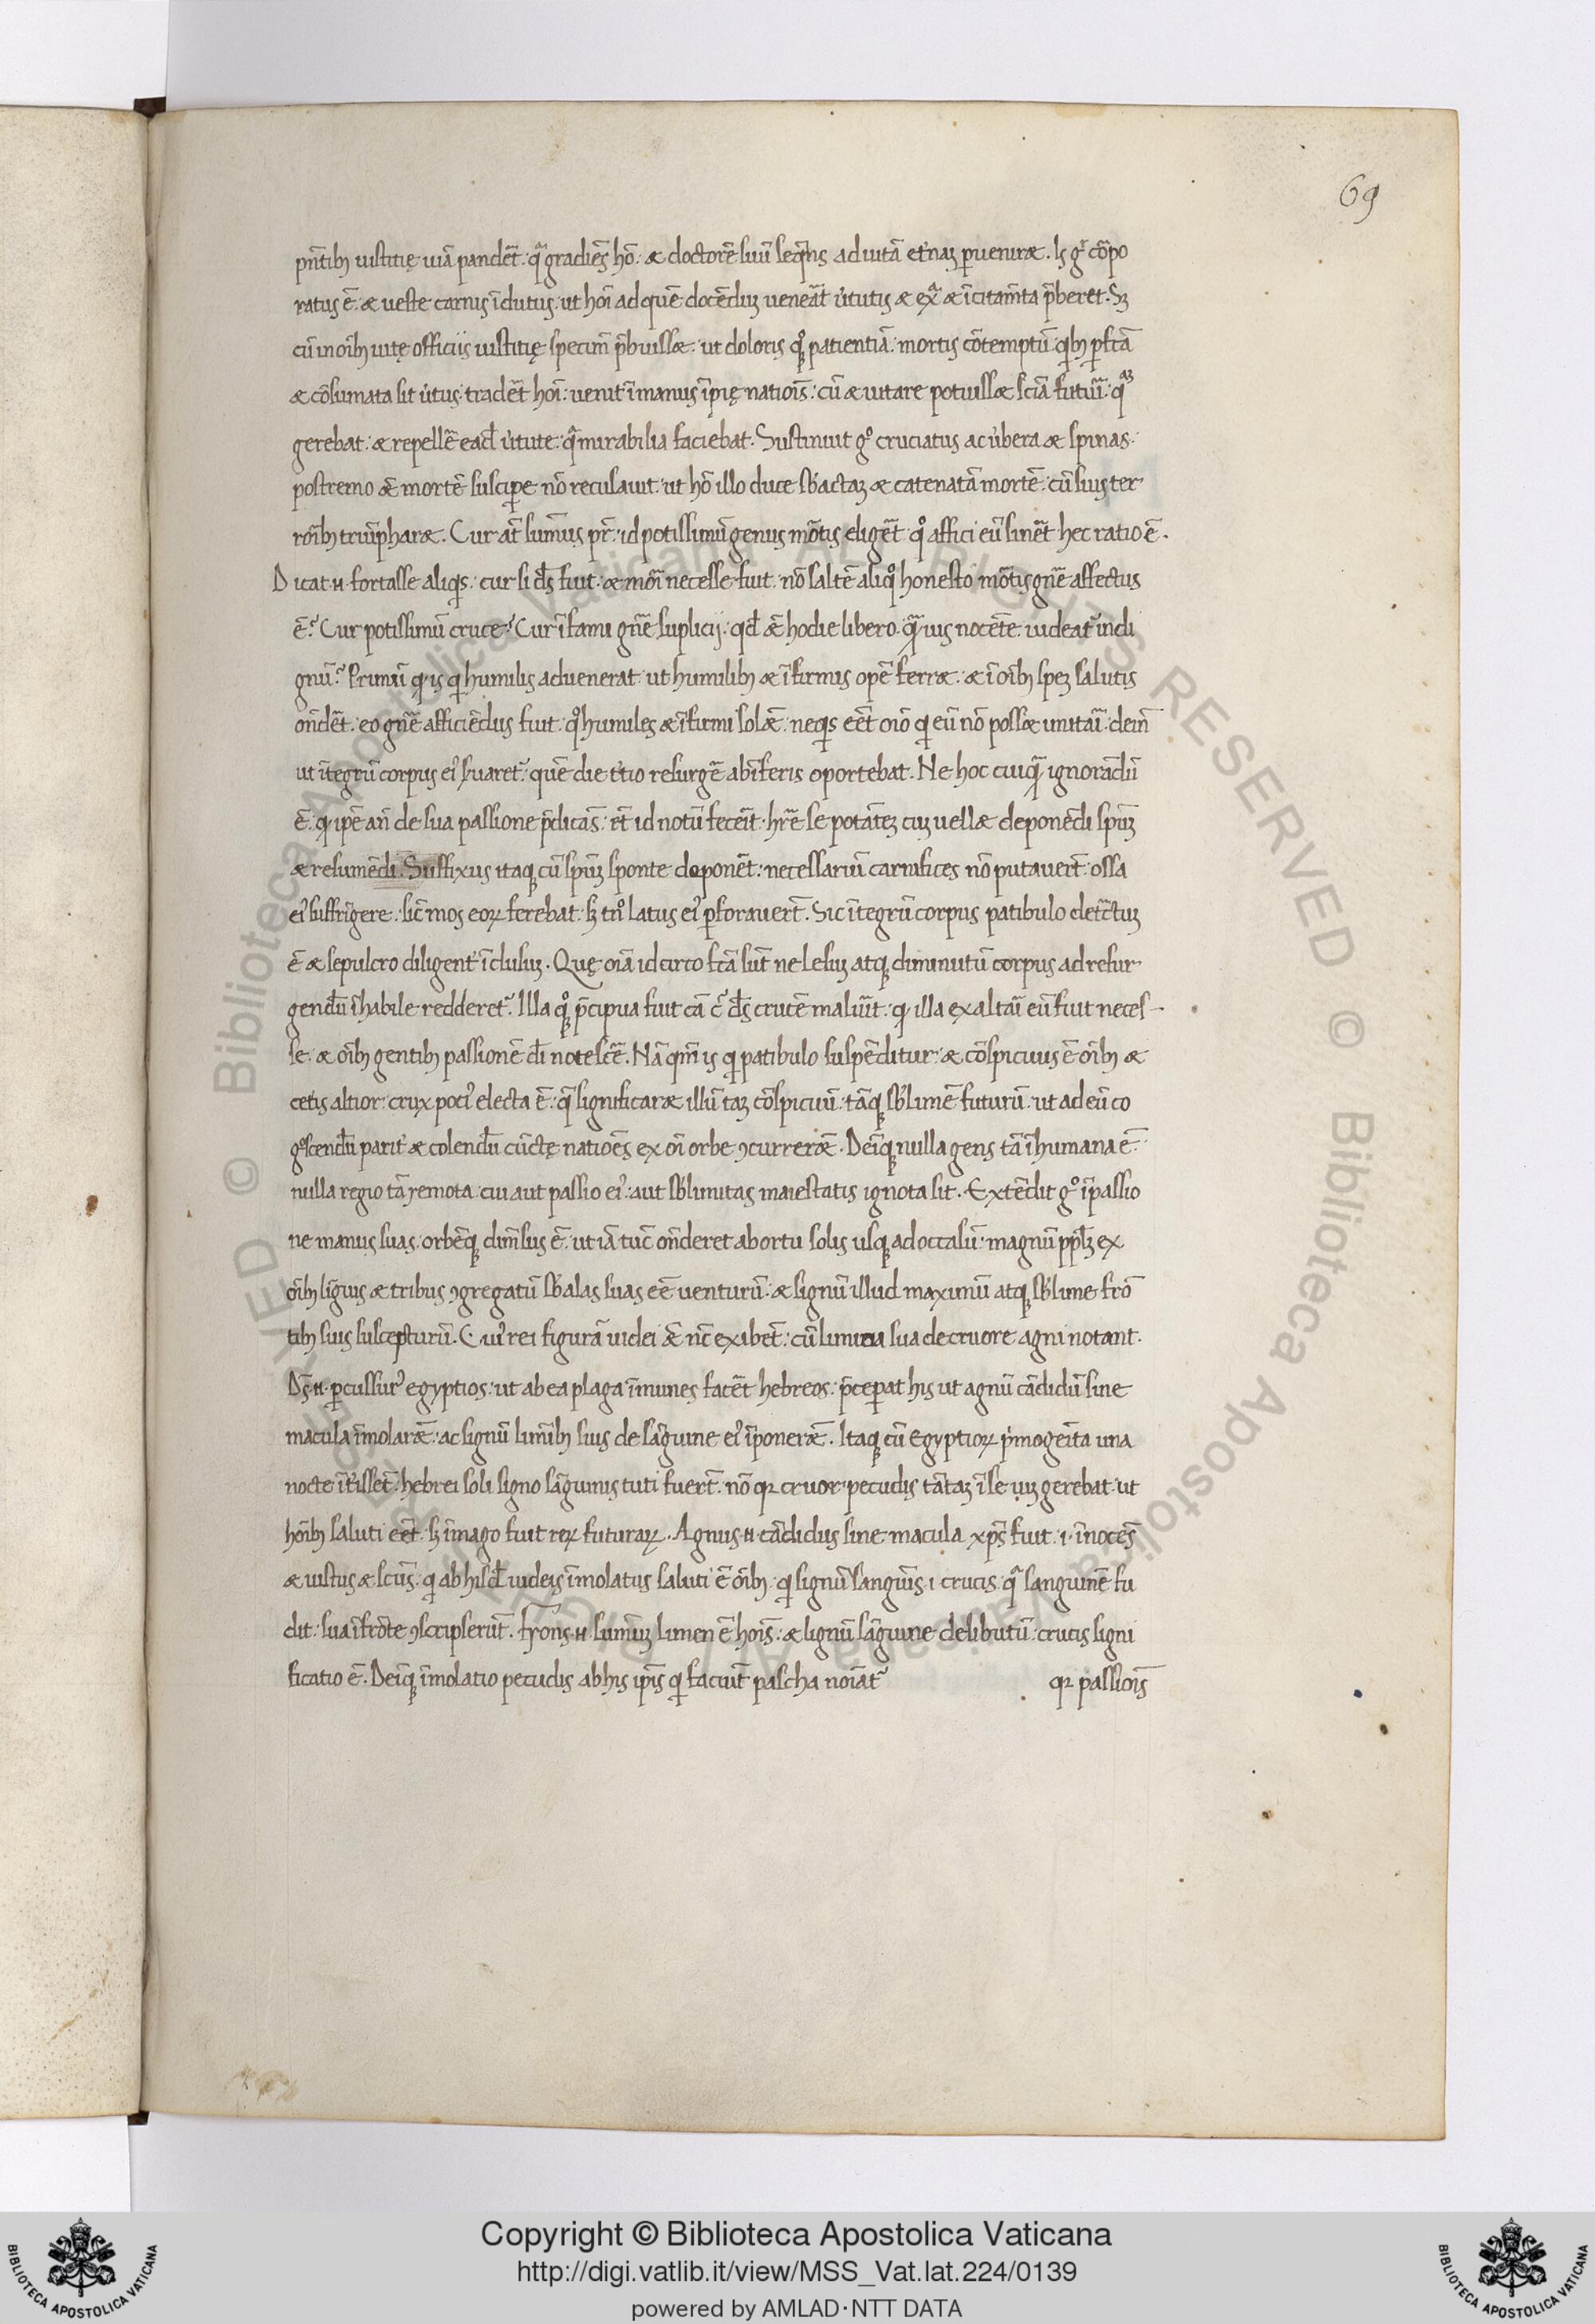 69
pñtibꝫ iustitię uiã pandẽt. q̃ gradiẽs hõ. & doctorẽ suũ seq̃ns ad uitã et̃naꝫ ꝑuenir&. Is gͥ cõpo
ratus ẽ. & ueste carnis ĩdutus. ut hoĩ ad quẽ docẽduꝫ uenẽat u̓tutis & ex̃a & ĩcitam̃ta p̃beret. Sꝫ
cũ in oĩbꝫ uitę officiis iustitię specim̃ p̃buiss&. ut doloris qͦꝗ patientiã. mortis cõtemptũ. qͥbꝫ ꝑfcã
& cõsumata sit u̓tus. tradẽt hoĩ. uenit ĩ manus ĩpię natioĩs. cũ & uitare potuiss& sciã futuᷓ. q̃ꝫ
gerebat. & repellẽ eađ u̓tute. q̃ mirabilia faciebat. Sustinuit gͦ cruciatus ac u̓bera & spinas.
postremo &̃ mortẽ suscipe nõ recusauit. ut hõ illo duce sƀactaꝫ & catenatã mortẽ. cũ suis ter
roĩbꝫ triũphar&. Cur aũt sum̃us pr̃. id potissimũ genus mõtis eligẽt. qͦ affici eũ sinẽt hec ratio ẽ.
Dicat .n. fortasse aliqͥs. cur si ds̃ fuit. & morĩ necesse fuit. nõ saltẽ aliqͦ honesto mõtis gñe affectus
ẽ? Cur potissimũ cruce? Cur ĩfami gñe suplicij. qđ &̃ hodie libero. q̃uis nocẽte. uideat᷑ indi
gnũ? Primũ qꝫ is qͥ humilis aduenerat ut humilibꝫ & ĩfirmis opẽ ferr&. & ĩ oĩbꝫ speꝫ salutis
oñdẽt. eo gñe afficiẽdus fuit. qͦ humiles & ĩfirmi sol&̃. neqͥs eẽt oĩo qͥ eũ nõ poss& imitaĩ. dein̄
ut ĩtegrũ corpus eiꝰ s̓uaret᷑. quẽ die t̓tio resurgẽ ab ĩferis oportebat. Ne hoc cuiq̃ ignorãdũ
ẽ. qꝫ ipẽ añ de sua passione p̃dicãs. et̃ id notũ feceĩt. hr̃e se potãteꝫ cuꝫ uell& deponẽdi spm̃
& resumẽdi. Suffixus itaꝗ cũ spm̃ sponte deponẽt. necessariũ carnifices nõ putauert̃. ossa
eiꝰ suffrĩgere. sic̃ mos eoꝝ ferebat. sꝫ tñ latus eiꝰ ꝑforauert̃. Sic ĩtegrũ corpus patibulo det̃ctuꝫ
ẽ & sepulcro diligent̓ ĩclusuꝫ. Quę oĩa idcirco fcã sũt ne lesuꝫ atꝗ diminutũ corpus ad resur
gendũ ĩhabile redderet᷑. Illa qͦꝗ p̃cipua fuit cã cͬ ds̃ crucẽ maluĩt. qꝫ illa exaltaĩ eũ fuit neces-
se. & oĩbꝫ gentibꝫ passionẽ di᷒ notescẽ. Nã qm̃ is qͥ patibulo suspẽditur. & cõspicuus ẽ oĩbꝫ &
cetis altior. crux potiꝰ electa ẽ. q̃ significar& illũ taꝫ cõspicuũ. tãꝗ sƀlimẽ futurũ. ut ad eũ co
gͦscendũ parit̓ & colendũ cũctę natioẽs ex oĩ orbe ꝯcurrer&̃. Deĩꝗ nulla gens tã ĩhumana ẽ.
nulla regio tã remota. cui aut passio eiꝰ. aut sƀlimitas maiestatis ignota sit. Extẽdit gͦ ĩ passio
ne manus suas. orbẽꝗ dim̃sus ẽ. ut iã tũc oñderet ab ortu solis usꝗ ad occasũ. magnũ pplꝫ ex
oĩbꝫ lĩguis & tribus ꝯgregatũ sƀ alas suas eẽ uenturũ. & signũ illud maximũ atꝗ sƀlime frõ
tibꝫ suis suscepturũ. Cuiꝰ rei figurã iudei &̃ nc̃ exibẽt. cũ limina sua de cruore agni notant.
Ds̃ .n. ꝑcussurꝰ egyptios. ut ab ea plaga ĩmunes facẽt hebreos. p̃ceperat his ut agnũ cãdidũ sine
macula ĩmolar&̃. ac signũ limĩbꝫ suis de sãguine eiꝰ ĩponer&̃. Itaꝗ cũ egyptioꝝ pͥmogeĩta una
nocte ĩt̓isset̃. hebrei soli signo sãguinis tuti fuert̃. nõ qꝛ cruor pecudis tãtaꝫ ĩ se uiꝫ gerebat. ut
hoĩbꝫ saluti eẽt. sꝫ ĩmago fuit reꝝ futuraꝝ. Agnus .n. cãdidus sine macula xp̃s fuit .i. ĩnocẽs
& iustus & scũs. qͥ ab hisđ iudeis ĩmolatus saluti ẽ oĩbꝫ. qͥ signũ sanguĩs .i. crucis. q̃ sanguinẽ fu
dit. sua ĩ frõte ꝯscripserũt. frons .n. sum̃uꝫ limen ẽ hoĩs. & lignũ sãguine delibutũ. crucis signi
ficatio ẽ. Deĩꝗ ĩmolatio pecudis ab his ip̃is qͥ faciũt pascha noĩat᷑ qꝛ passioĩs
© Biblioteca Apostolica Vaticana ALL RIGHTS RESERVED
Copyright © Biblioteca Apostolica Vaticana
http://digi.vatlib.it/view/MSS_Vat.lat.224/0139
powered by AMLAD·NTT DATA
BIBLIOTECA APOSTOLICA VATICANA
BIBLIOTECA APOSTOLICA VATICANA